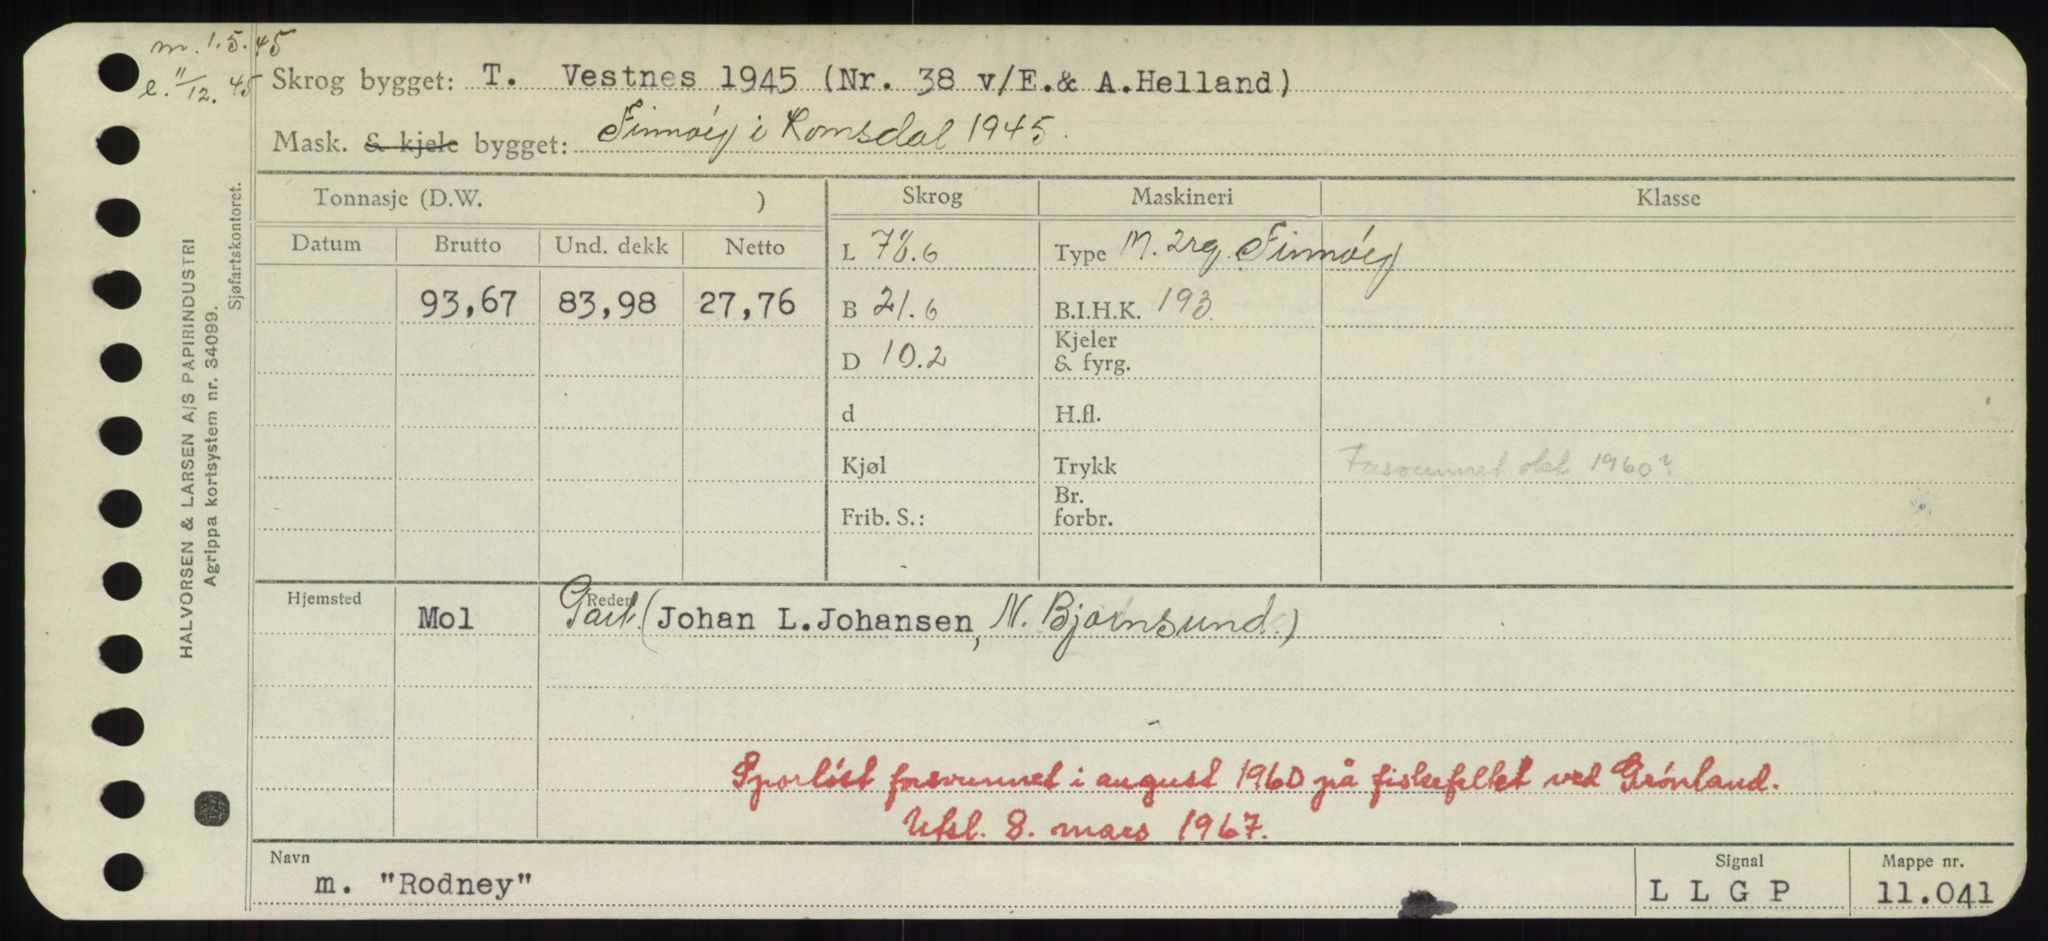 m. 1.5.45
e. 11/12. 45
Skrog bygget: T. Vestnes 1945 (Nr. 38 v/E.& A.Helland)
Mask. & kjele bygget: Finnøig i Romsdal 1945.
Tonnasje (D.W. ) Skrog Maskineri Klasse
Datum Brutto Und. dekk Netto L 78.6 Type M. 2rg. Finnøig
93,67 83,98 27,76 B 21.6 B.I.H.K. 193
D 10.2 Kjeler & fyrg.
d H.fl.
Kjøl Trykk Forsvunnet okt 1960?
Frib. S.: Br. forbr.
Hjemsted Reder
Mol Part. (Johan L.Johansen, N. Bjørnsund.)
Sporløst forsvunnet i august 1960 på fiskefeltet ved Grønland.
Utsl. 8. mars 1967.
Navn Signal Mappe nr.
m. "Rodney" L L G P 11.041
HALVORSEN & LARSEN A/S PAPIRINDUSTRI
Agrippa kortsystem nr. 34099.
Sjøfartskontoret.